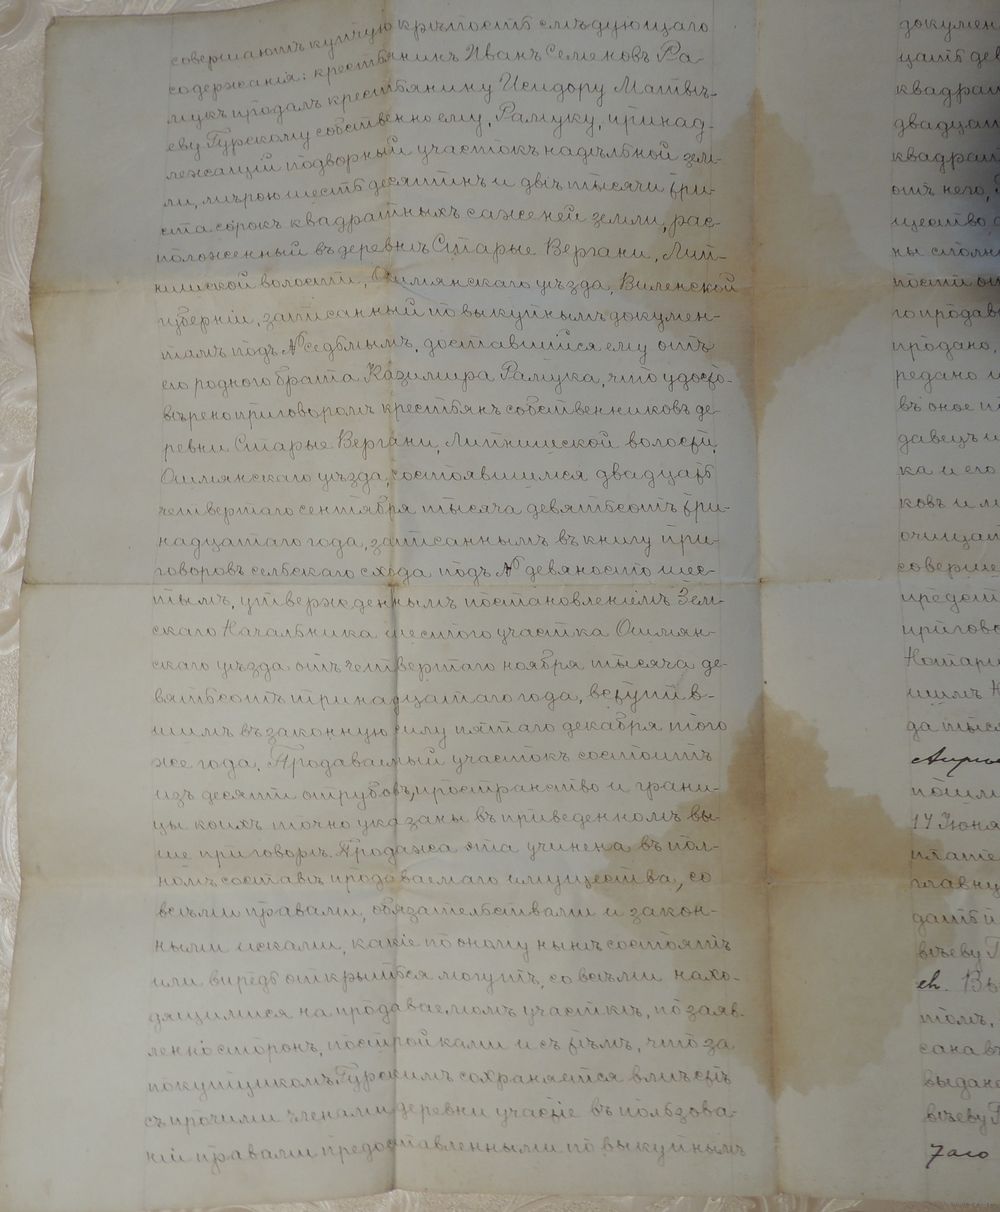 совершаютъ купчую крѣпость слѣдующаго
содержанія: крестьянинъ Иванъ Семеновъ Ра-
мукъ продалъ крестьянину Исидору Матвѣ-
еву Гурскому собственно ему, Рамуку, принад-
лежащій подворный участокъ надѣльной зем-
ли, мѣрою шесть десятинъ и двѣ тысячи три-
ста сорокъ квадратныхъ саженей земли, рас-
положенный въ деревнѣ Старые Вергани, Лип-
нишской волости, Ошмянскаго уѣзда, Виленской
губерніи, записанный по выкупнымъ докумен-
тамъ подъ № седьмымъ, доставшійся ему отъ
его родного брата Казимира Рамука, что удосто-
вѣрено приговоромъ крестьянъ собственниковъ де-
ревни Старые Вергани, Липнишской волости,
Ошмянскаго уѣзда, состоявшимся двадцать
четвертаго сентября тысяча девятьсотъ три-
надцатаго года, записаннымъ въ книгу при-
говоровъ сельскаго схода подъ № девяносто шес-
тымъ, утвержденнымъ постановленіемъ Зем-
скаго Начальника шестого участка Ошмян-
скаго уѣзда отъ четвертаго ноября тысяча де-
вятьсотъ тринадцатаго года, вступив-
шимъ въ законную силу пятаго декабря того
же года. Продаваемый участокъ состоитъ
изъ десяти отрубовъ, пространство и грани-
цы коихъ точно указаны въ приведенномъ вы-
ше приговорѣ. Продажа эта учинена въ пол-
номъ составѣ продаваемаго имущества, со
всѣми правами, обязательствами и закон-
ными исками, какіе по оному нынѣ состоятъ
или впредь открыться могутъ, со всѣми нахо-
дящимися на продаваемомъ участкѣ, по заяв-
ленію сторонъ, постройками и съ тѣмъ, что за
покупщикомъ Гурскимъ сохраняется вмѣстѣ
съ прочими членами деревни участіе въ пользова-
ніи правами предоставленными по выкупнымъ
докумен
цать дев
квадрат
двадцат
квадрат
отъ него,
щество,
ны столи
пости от
го продав
продано,
редано и
въ оное
давецъ и
ка и его
ковъ и
очищат
соверше
предст
пригово
Нотари
шимъ
да тыся
пошли
17 Іюня
плате
главну
дать
вѣеву Г
ей. Въ
томъ,
сана въ
выдана
вѣеву Г
7аго